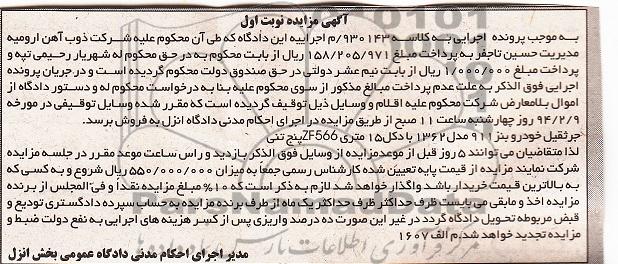 آگهی مزایده نوبت اول
به موجب پرونده اجرایی به کلاسه ۹۳۰۱۴۳/م اجراییه این دادگاه که طی آن محکوم علیه شرکت ذوب آهن ارومیه
مدیریت حسین تاجفر به پرداخت مبلغ ۱۵۸/۲۰۵/۹۷۱ ریال از بابت محکوم به در حق محکوم له شهریار رحیمی تپه و
پرداخت مبلغ ۱/۰۰۰/۰۰۰ ریال از بابت نیم عشر دولتی در حق صندوق دولت محکوم گردیده است و در جریان پرونده
اجرایی فوق الذکر به علت عدم پرداخت مبالغ مذکور از سوی محکوم علیه بنا به درخواست محکوم له و دستور دادگاه از
اموال بلامعارض شرکت محکوم علیه اقلام و وسایل ذیل توقیف گردیده است که مقرر شده وسایل توقیفی در مورخه
۹۴/۲/۹ روز چهارشنبه ساعت ۱۱ صبح از طریق مزایده در اجرای احکام مدنی دادگاه انزل به فروش برسد.
جرثقیل خودرو بنز ۹۱۱ مدل ۱۳۶۲ با دکل ۱۵ متری ZF566 پنج تنی
لذا متقاضیان می توانند ۵ روز قبل از موعد مزایده از وسایل فوق الذکر بازدید و راس ساعت موعد مقرر در جلسه مزایده
شرکت نمایند مزایده از قیمت پایه تعیین شده کارشناس رسمی جمعا به میزان ۵۵۰/۰۰۰/۰۰۰ ریال شروع و به کسی که
به بالاترین قیمت خریدار باشد واگذار خواهد شد لازم به ذکر است که ۱۰% مبلغ مزایده نقدا و فی المجلس از برنده
مزایده اخذ و مابقی می بایست ظرف حداکثر ظرف حداکثر یک ماه از طرف برنده مزایده به حساب سپرده دادگستری تودیع و
قبض مربوطه تحویل دادگاه گردد در غیر این صورت ده درصد واریزی پس از کسر هزینه های اجرایی به نفع دولت ضبط و
مزایده تجدید خواهد شد. م الف ۱۶۰۷
مدیر اجرای احکام مدنی دادگاه عمومی بخش انزل